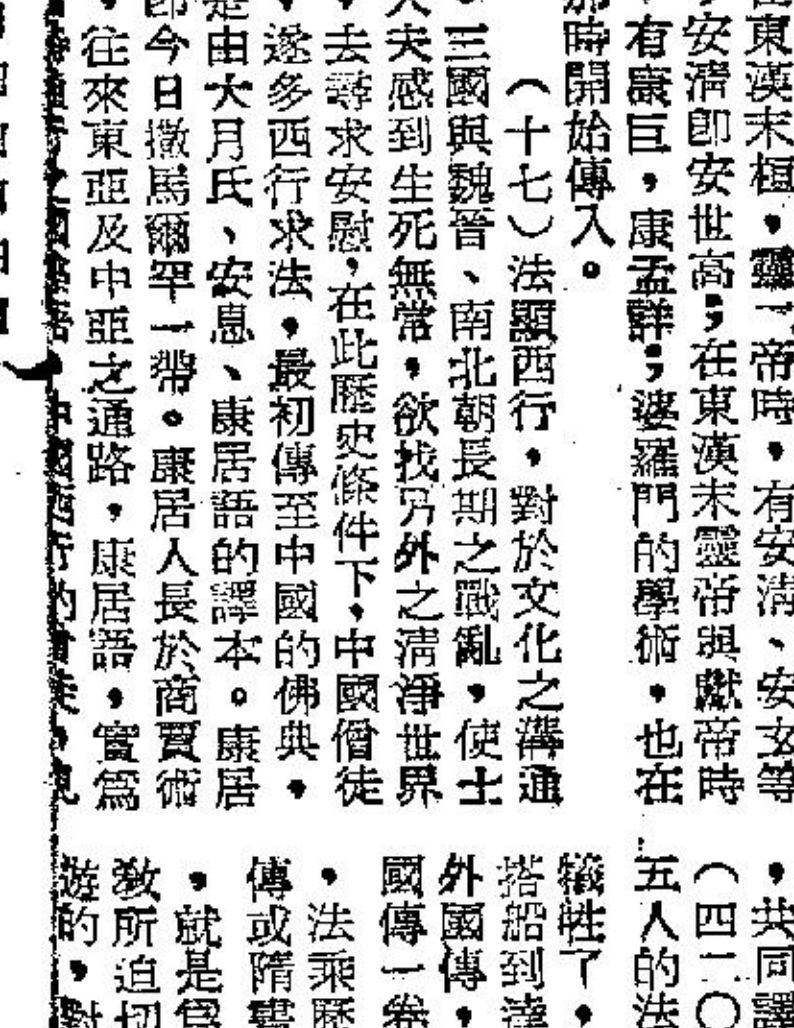 東漢末桓，靈二帝時，有安淸、安玄等
安淸卽安世高；在東漢末靈帝與獻帝時
有康巨，康孟詳；婆羅門的學術，也在
時開始傳入。
（十七）法顯西行，對於文化之溝通
。三國與魏晉、南北朝長期之戰亂，使士
大夫感到生死無常，欲找另外之淸淨世界
，去尋求安慰，在此歷史條件下，中國僧徒
，遂多西行求法，最初傳至中國的佛典，
是由大月氏、安息、康居語的譯本。康居
卽今日撒馬爾罕一帶。康居人長於商賈術
，往來東亞及中亞之通路，康居語，實爲
，共同譯
（四二〇
五人的法
犧牲了，
搭船到達
外國傳，
國傳一卷
，法乘歷
傳或隋書
，就是爲
敎所迫切
遊的，對